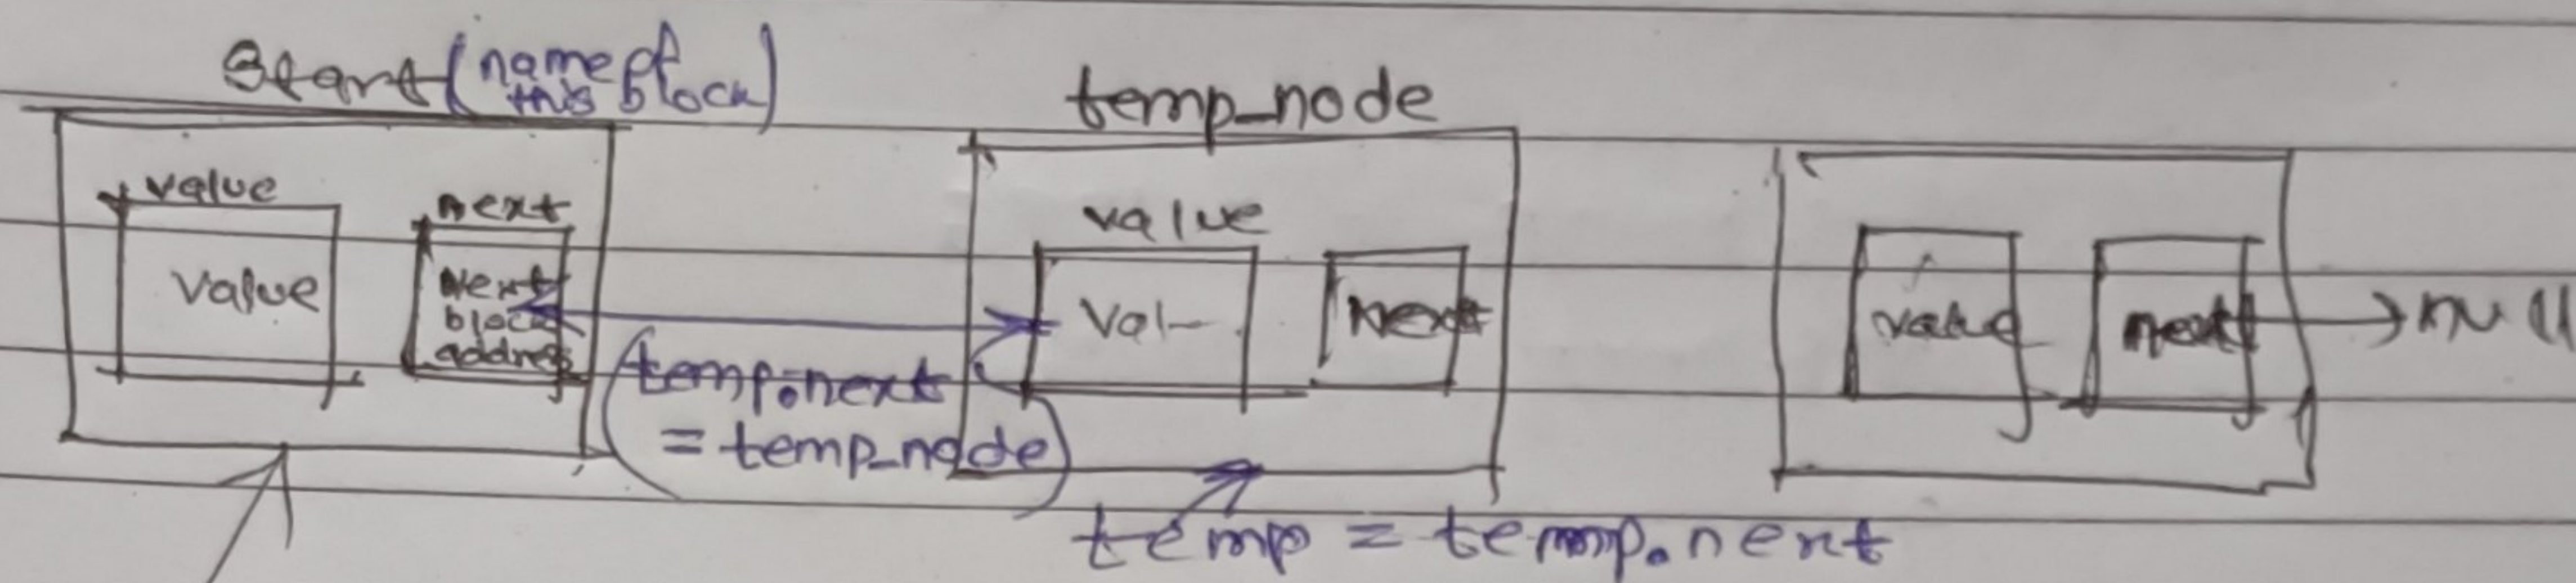 Start (name of this block)
temp_node
value
next
value
Next
block
address
value
Val
Next
value
next
null
temp.next
= temp_node
temp = temp.next